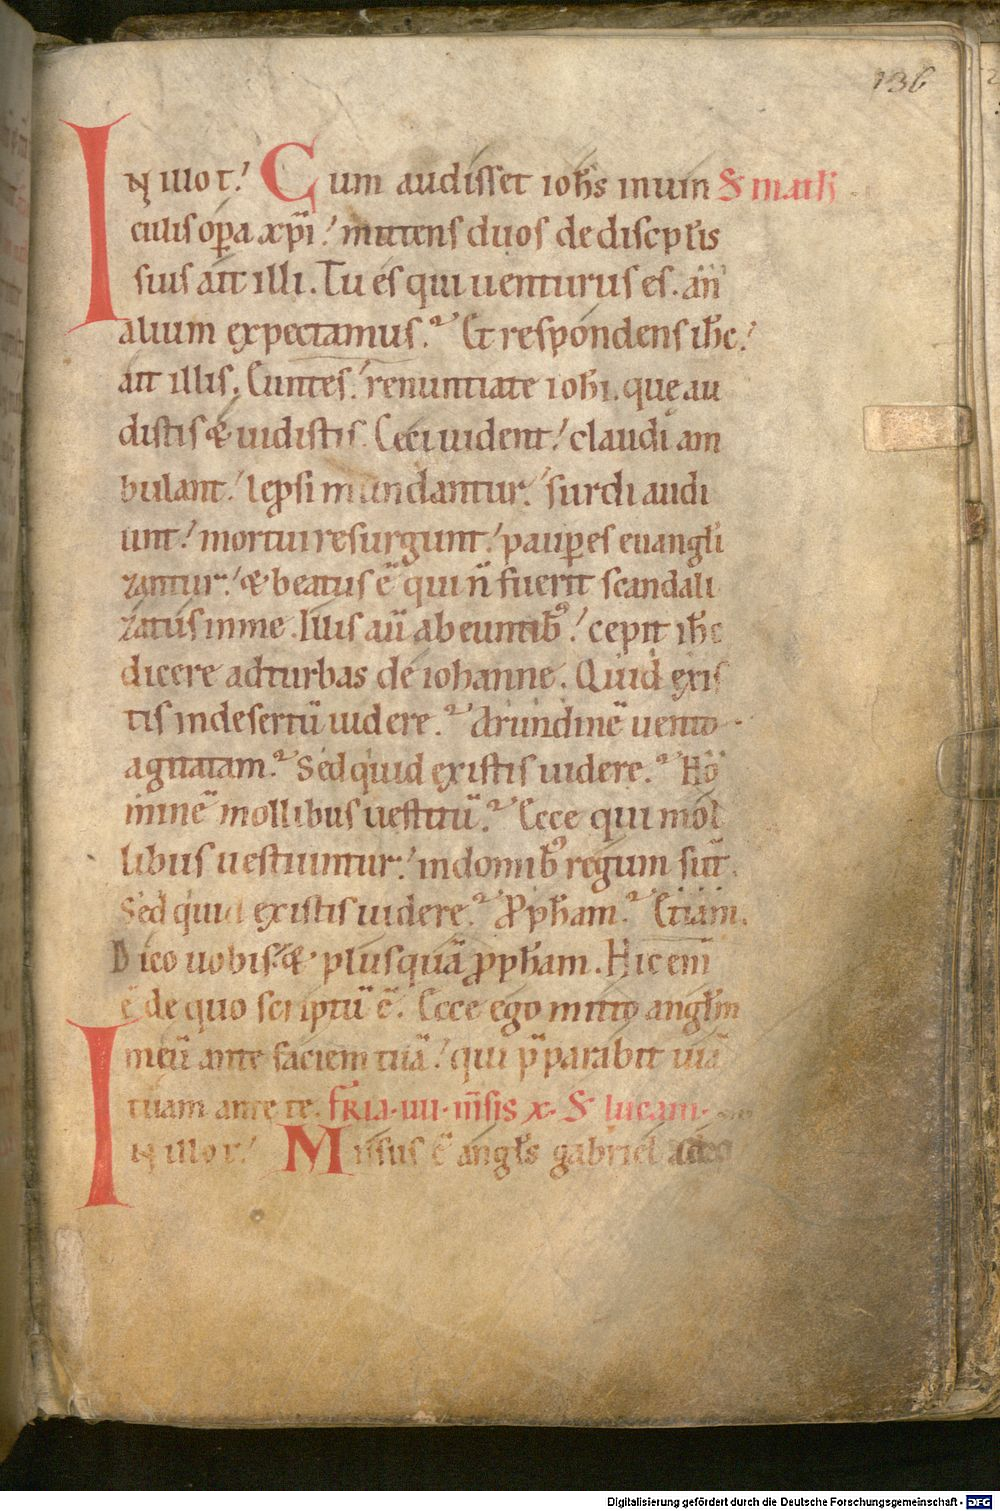 136
IN illo t̄. Cum audisset ioh̄s in uin S̄ math̄
culis oꝑa xp̄i. mittens duos de discipl̄is
suis ait illi. Tu es qui uenturus es. an̄
alium expectamus. Et respondens ih̄c.
ait illis. Euntes. renuntiate ioh̄i. que au
distis & uidistis. Ceci uident. claudi am
bulant. lep̄si mundantur. surdi audi
unt. mortui resurgunt. pauꝑes euangl̄i
zantur. & beatus ē qui n̄ fuerit scandali
zatus in me. Illis aū abeuntib᷒. cepit ih̄c
dicere ad turbas de iohanne. Quid exis
tis in desertū uidere. Arundinē uento
agitatam. Sed quid existis uidere. Ho
minē mollibus uestitū. Ecce qui mol
libus uestiuntur. in domib᷒ regum sūt.
Sed quid existis uidere. Ꝓph̄am. Etiam.
Dico uobis. & plus quā ꝓph̄am. Hic eni
ē de quo scriptū ē. Ecce ego mitto angl̄m
meū ante faciem tuā. qui p̄parabit uiā
tuam ante te. fr̄ia. iiii. m̄sis x. S̄ lucam.
IN illo t̄. Missus ē angl̄s gabriel a deo
Digitalisierung gefördert durch die Deutsche Forschungsgemeinschaft - DFG